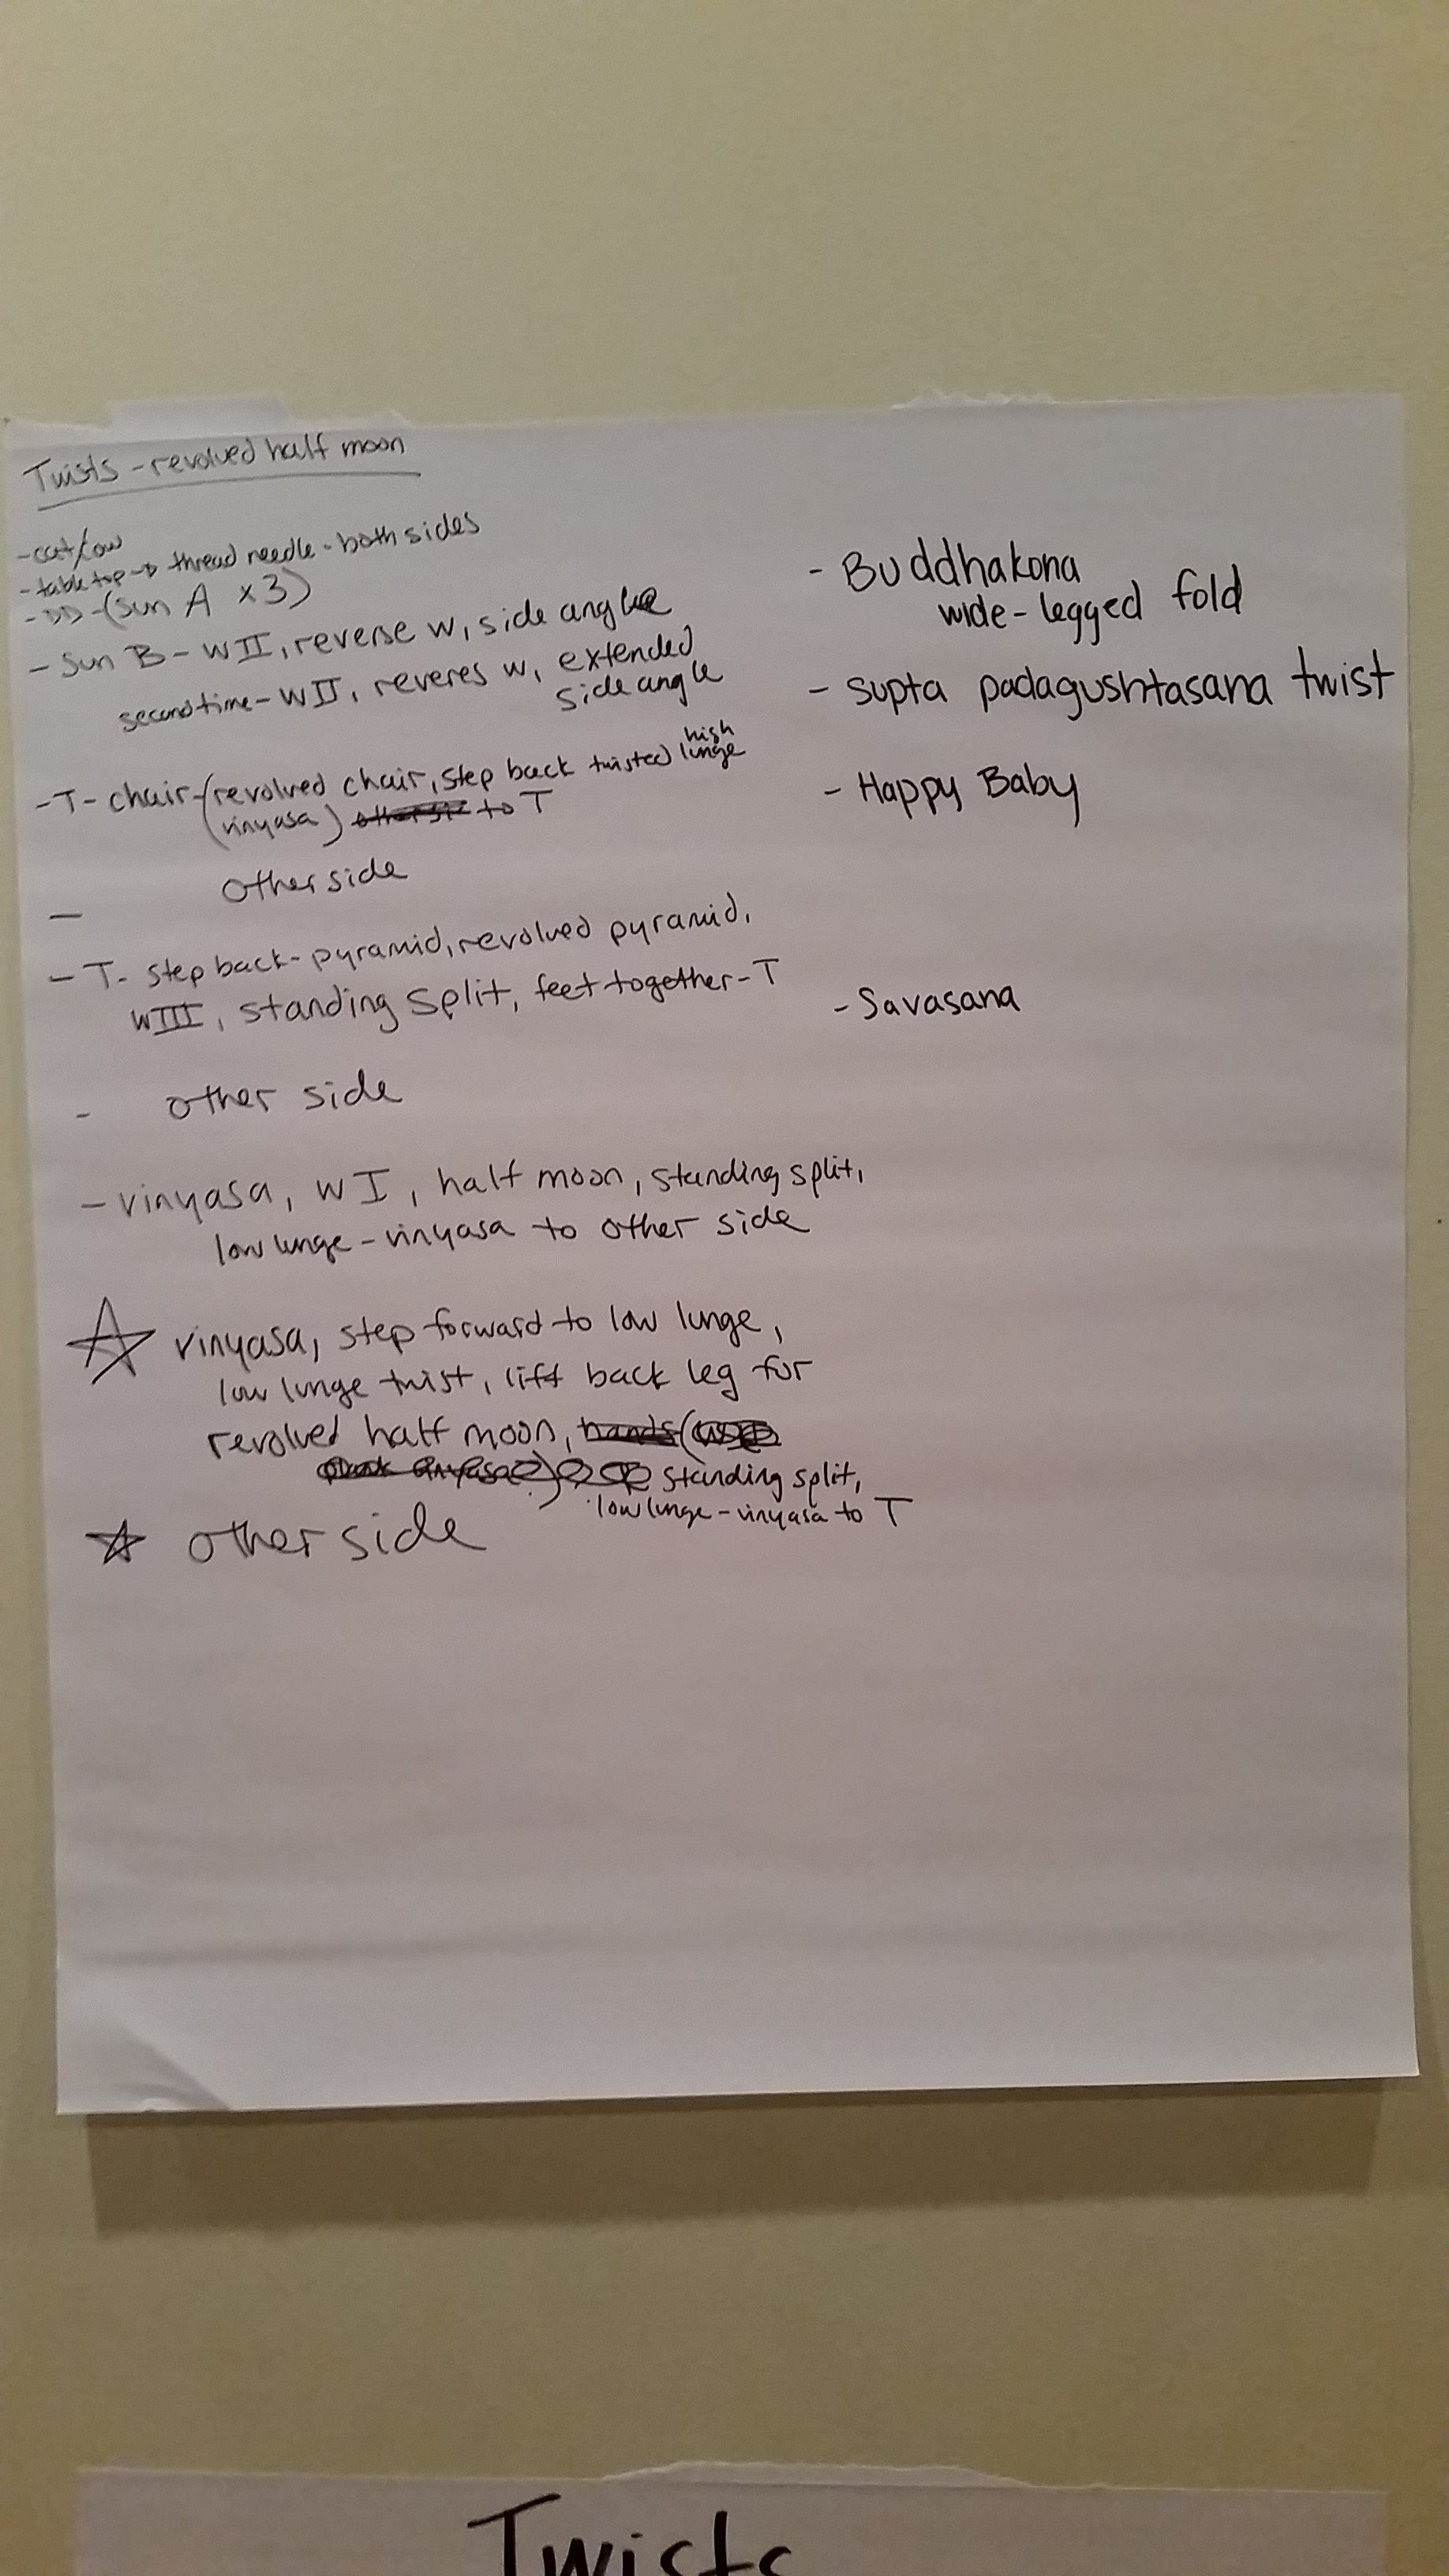 Twists - revolved half moon
- cat/cow
- table top → thread needle - both sides
- DD - (Sun A x3)
- Sun B - WII, reverse w, side angle
second time - WII, reveres w, extended
side angle
high
- T - chair - (revolved chair, step back twisted lunge
(vinyasa) to T
other side
-
- T - step back - pyramid, revolved pyramid,
WIII, standing split, feet together - T
- other side
- vinyasa, WI, half moon, standing split,
low lunge - vinyasa to other side
☆ vinyasa, step forward to low lunge,
low lunge twist, lift back leg for
revolved half moon,
standing split,
low lunge - vinyasa to T
☆ other side
- Buddhakona
wide-legged fold
- supta padagushtasana twist
- Happy Baby
- Savasana
Twists